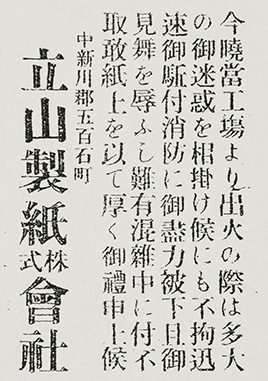 今曉當工場より出火の際は多大
の御迷惑を相掛け候にも不拘迅
速御馳付消防に御盡力被下且御
見舞を辱ふし難有混雜中に付不
取敢紙上を以て厚く御禮申上候
中新川郡五百石町
立山製紙株式會社